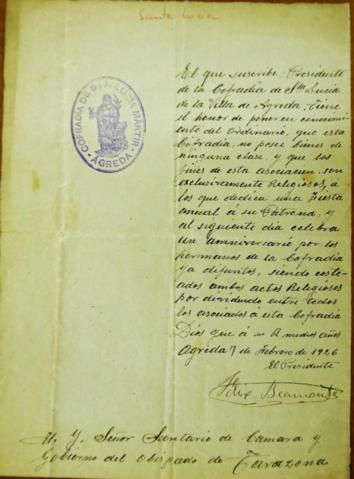 Santa Lucia
COFRADIA DE STA. LUCIA MARTIR
AGREDA
El que suscribe, Presidente
de la Cofradia de Sta Lucia
de la Villa de Agreda, tiene
el honor de poner en conoci
miento del Ordinario, que esta
Cofradia no posee bienes de
ninguna clase, y que los
fines de esta asociacion, son
exclusivamente Religiosos, a
los que dedica una Fiesta
anual á su Patrona, y
al siguiente dia celebra
un anniversario por los
hermanos de la Cofradia
ya difuntos, siendo coste
ados ambos actos Religiosos
por dividendo entre todos
los asociados á esta Cofradia
Dios que á su R muchos años
Agreda 7 de Febrero de 1926
El Presidente
Beamonte
M. Y. Señor Secretario de Camara y
Gobierno del Obispado de Tarazona